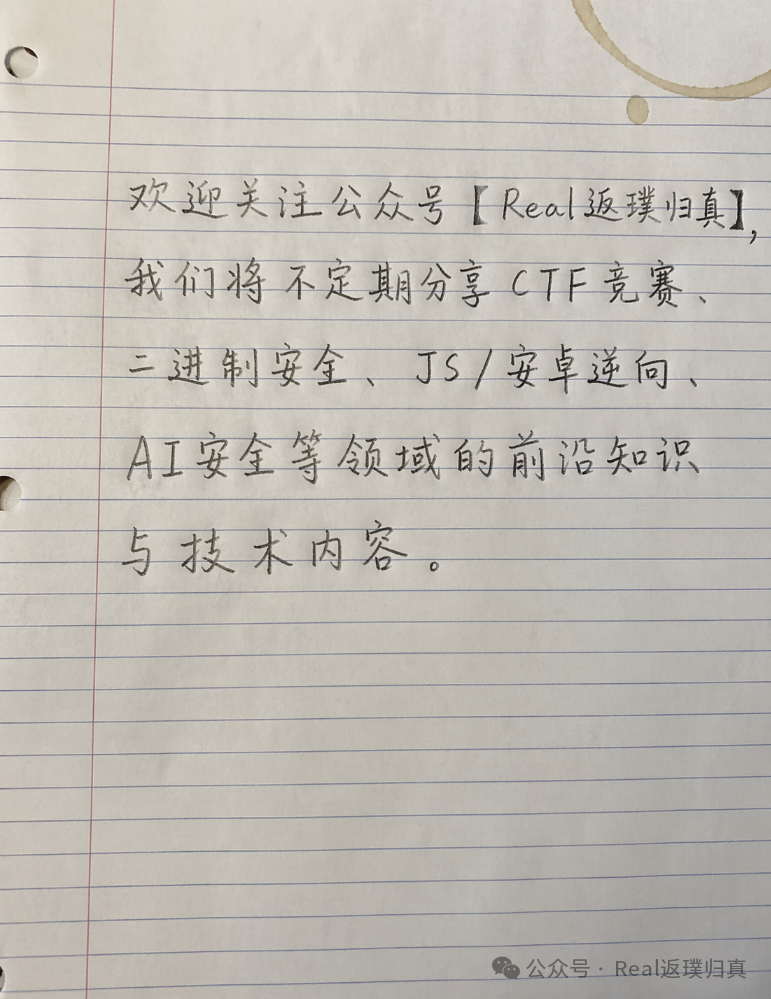 欢迎关注公众号【Real返璞归真】,
我们将不定期分享CTF竞赛、
二进制安全、JS/安卓逆向、
AI安全等领域的前沿知识
与技术内容。
公众号·Real返璞归真